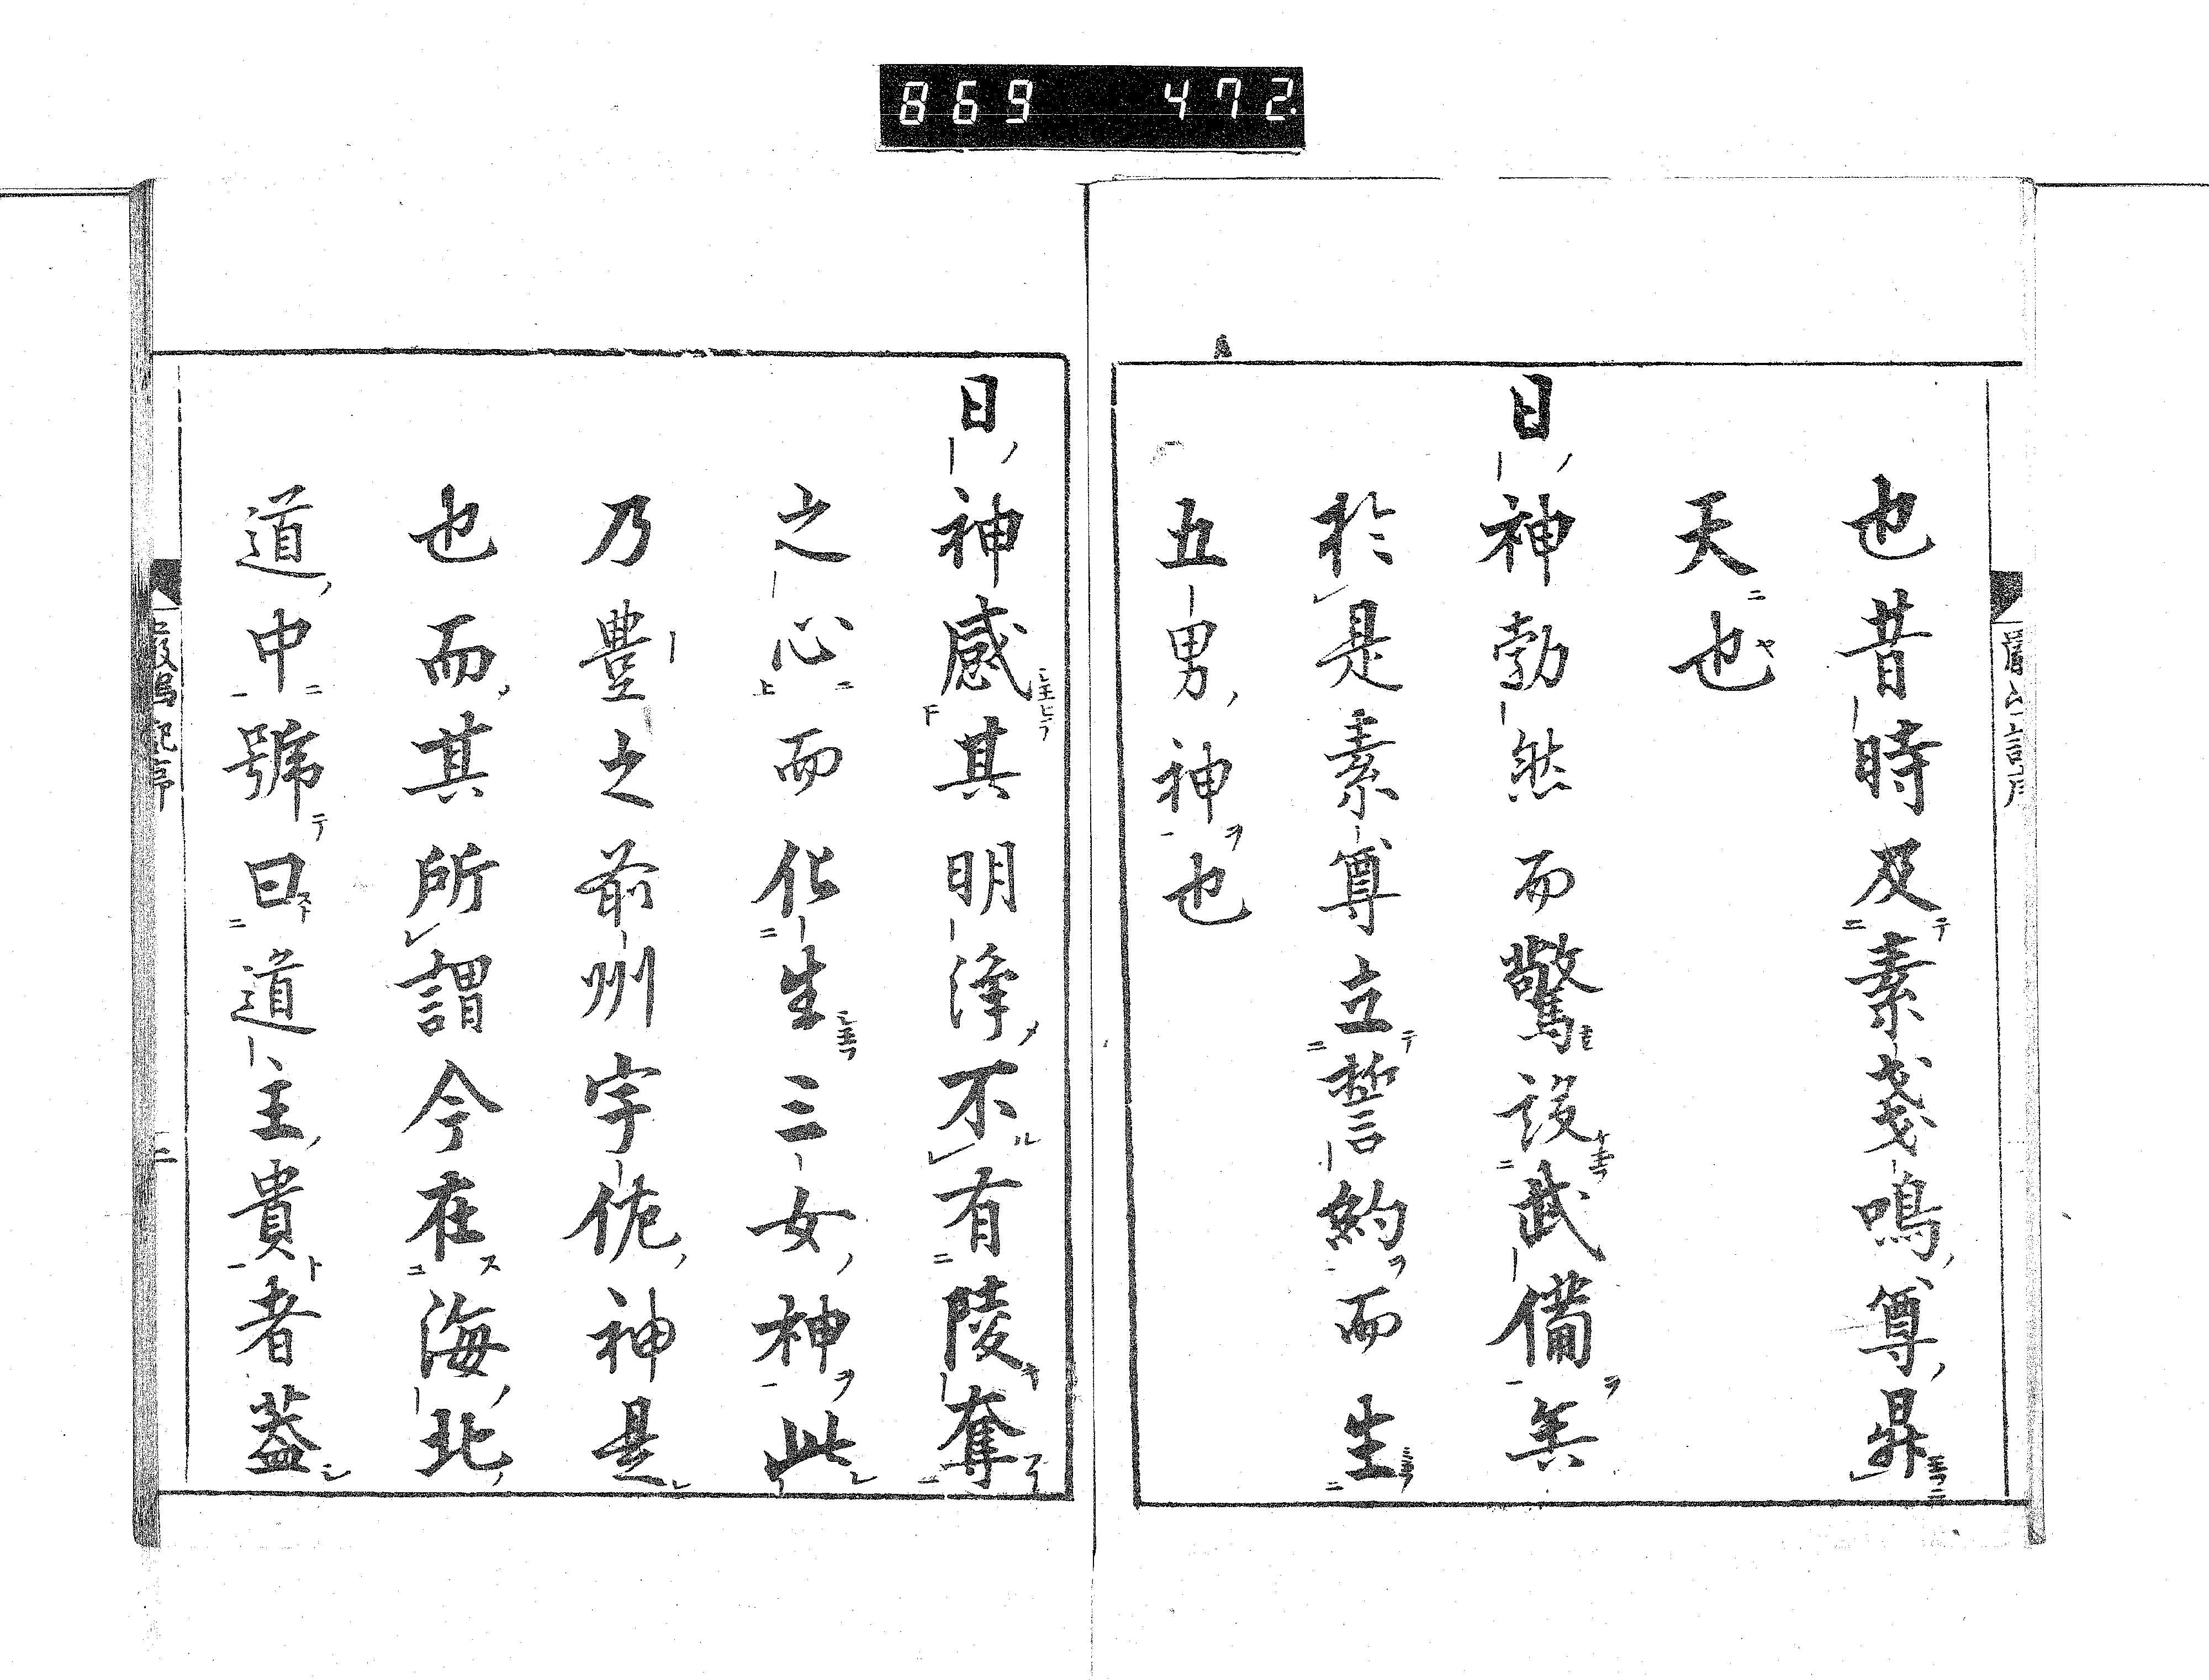 869 472
也昔時及素戔嗚尊昇
天也
日神勃然而驚設武備矣
於是素尊立誓約而生
五男神也
日神感其明淨不有陵奪
之心而化生三女神此
乃豐之前州宇佐神是
也而其所謂今在海北
道中號曰道主貴者蓋
二